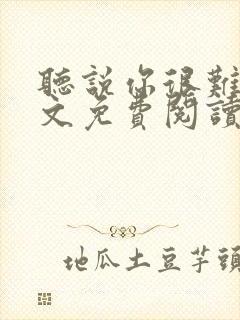 聽說你很難
文免費閱讀
地瓜土豆芋頭